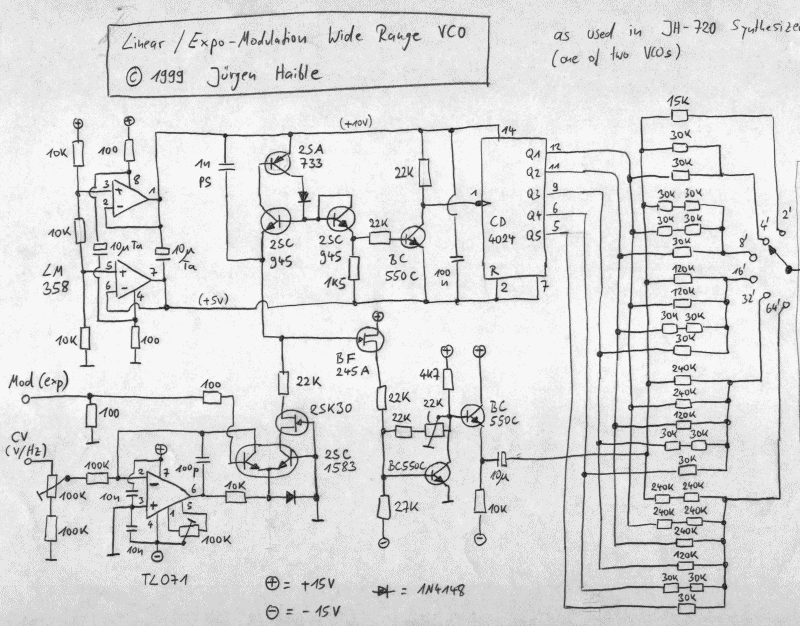 Linear / Expo-Modulation Wide Range VCO
© 1999 Jürgen Haible
as used in JH-720 Synthesizer
(one of two VCOs)
10K
100
8
3
2
1
+
-
10K
10µ Ta
10µ
Ta
LM
358
5
6
7
4
+
-
10K
100
(+10V)
(+5V)
1n
PS
2SA
733
2SC
945
2SC
945
1K5
22K
22K
BC
550C
100
n
14
1
CD
4024
R
2
7
Q1
Q2
Q3
Q4
Q5
12
11
9
6
5
15K
30K
30K
30K 30K
30K 30K
30K
120K
120K
30K 30K
30K
240K
240K
120K
30K 30K
30K
240K 240K
240K 240K
240K
120K
30K 30K
30K
2'
4'
8'
16'
32'
64'
BF
245A
22K
2SK30
2SC
1583
Mod (exp)
100
100
CV
(V/Hz)
100K
100K
100K
10n
10n
2
3
7
6
4
1
5
-
+
100p
10K
100K
TL071
22K
22K
22K
27K
4K7
BC
550C
BC550C
10µ
10K
⊕ = +15V
⊖ = -15V
= 1N4148